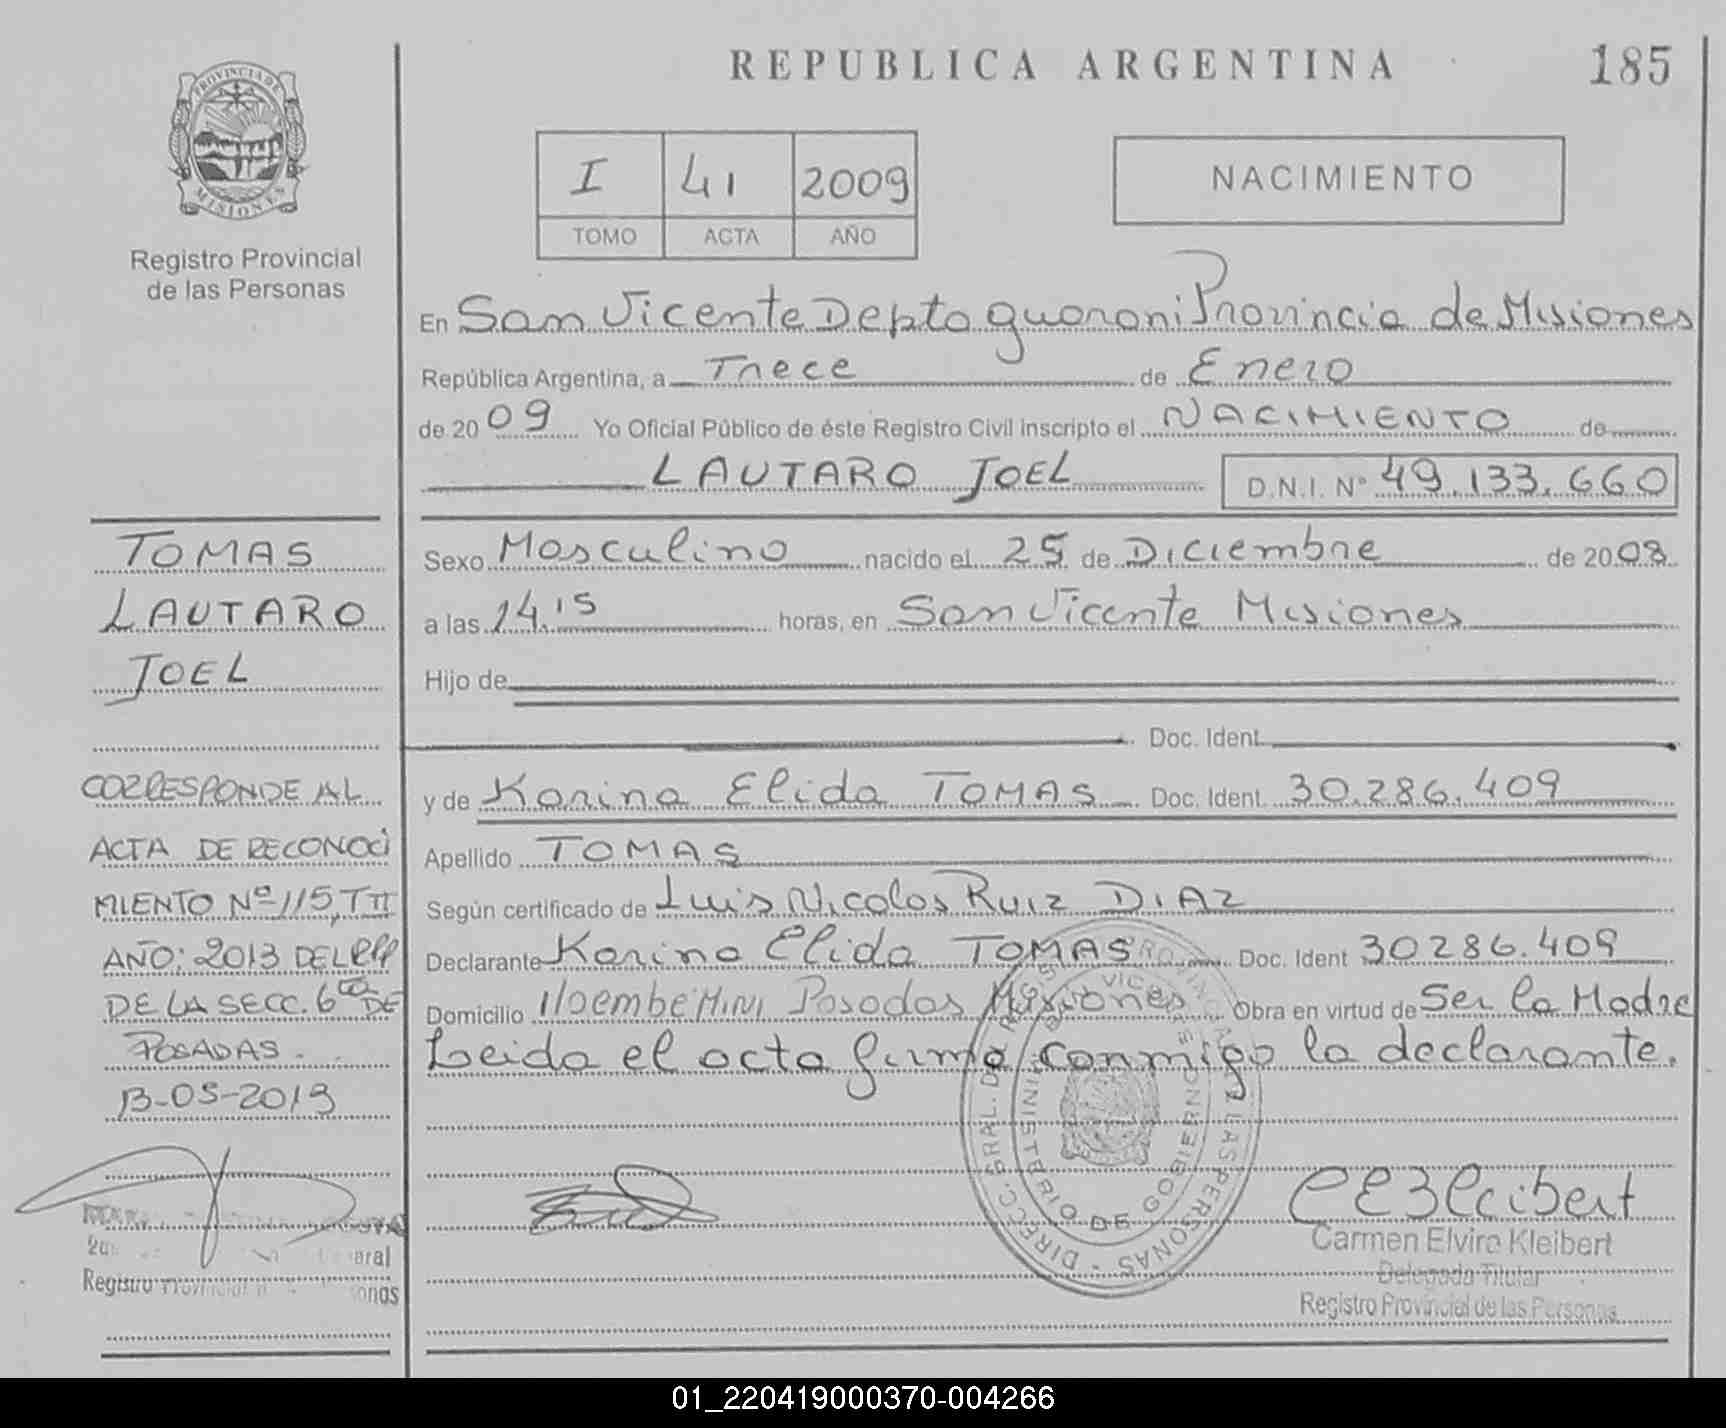 REPUBLICA ARGENTINA
185
PROVINCIA DE
MISIONES
Registro Provincial
de las Personas
I 41 2009
TOMO ACTA AÑO
NACIMIENTO
En San Vicente Depto guarani Provincia de Misiones
República Argentina, a Trece de Enero
de 20 09 Yo Oficial Público de éste Registro Civil inscripto el NACIMIENTO de
LAUTARO JOEL D.N.I. Nº 49.133.660
Sexo Masculino nacido el 25 de Diciembre de 20 08
a las 14.15 horas, en San Vicente Misiones
Hijo de
Doc. Ident
y de Karina Elida TOMAS Doc. Ident 30.286.409
Apellido TOMAS
Según certificado de Luis Nicolas Ruiz DIAZ
Declarante Karina Elida TOMAS Doc. Ident 30286.409
Domicilio Posadas Misiones Obra en virtud de Ser la Madre
Leida el acta firma conmigo la declarante.
TOMAS
LAUTARO
JOEL
CORRESPONDE AL
ACTA DE RECONOCI
MIENTO Nº 115, TII
AÑO: 2013 DEL RPP
DE LA SECC. 6ta DE
POSADAS.
13-05-2013
Registro Provincial
DIRECC. GRAL. DE REGISTRO PROVINCIAL DE LAS PERSONAS
MINISTERIO DE GOBIERNO
Carmen Elvira Kleibert
Delegada Titular
Registro Provincial de las Personas
01_220419000370-004266